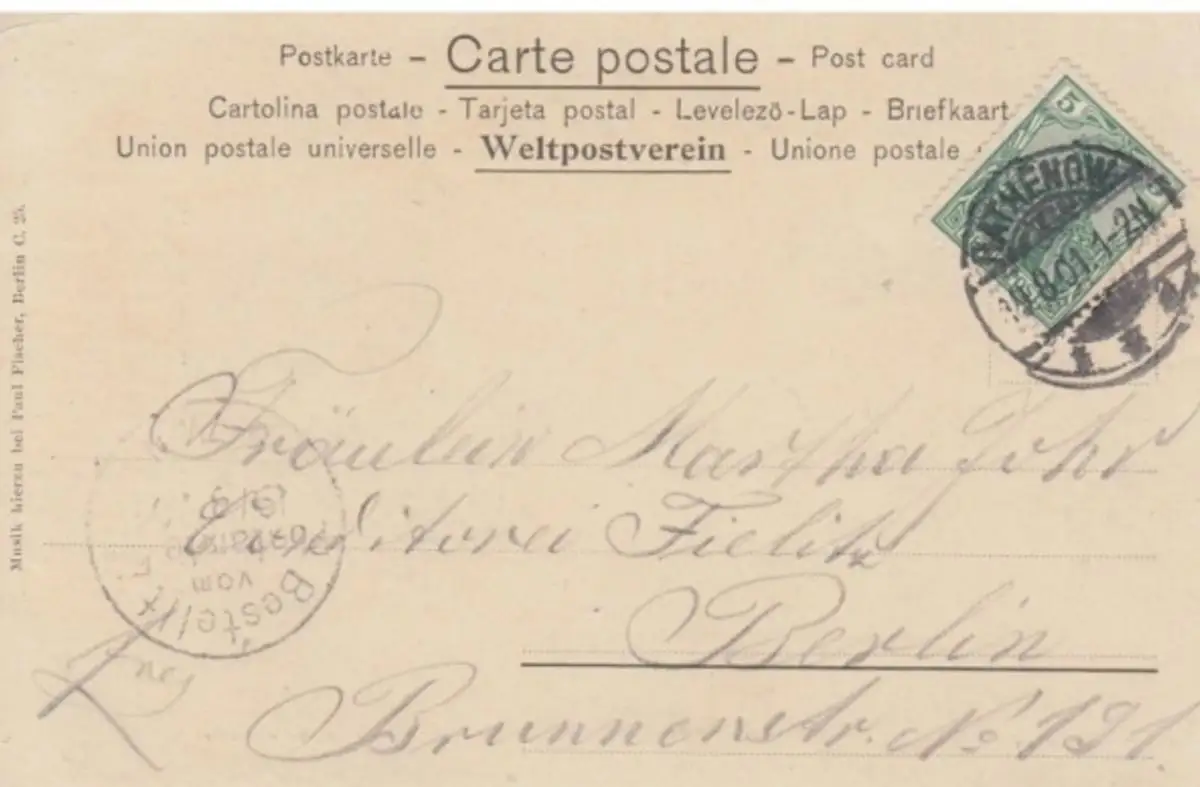 Postkarte - Carte postale - Post card
Cartolina postale - Tarjeta postal - Levelező-Lap - Briefkaart
Union postale universelle - Weltpostverein - Unione postale
5
RATHENOW
14.8.01. 1-2N
Musik hierzu bei Paul Fischer, Berlin C. 25.
Fräulein Martha
Conditorei Fielitz
Berlin
Brunnenstr. No. 191.
Bestellt
vom
Postamte